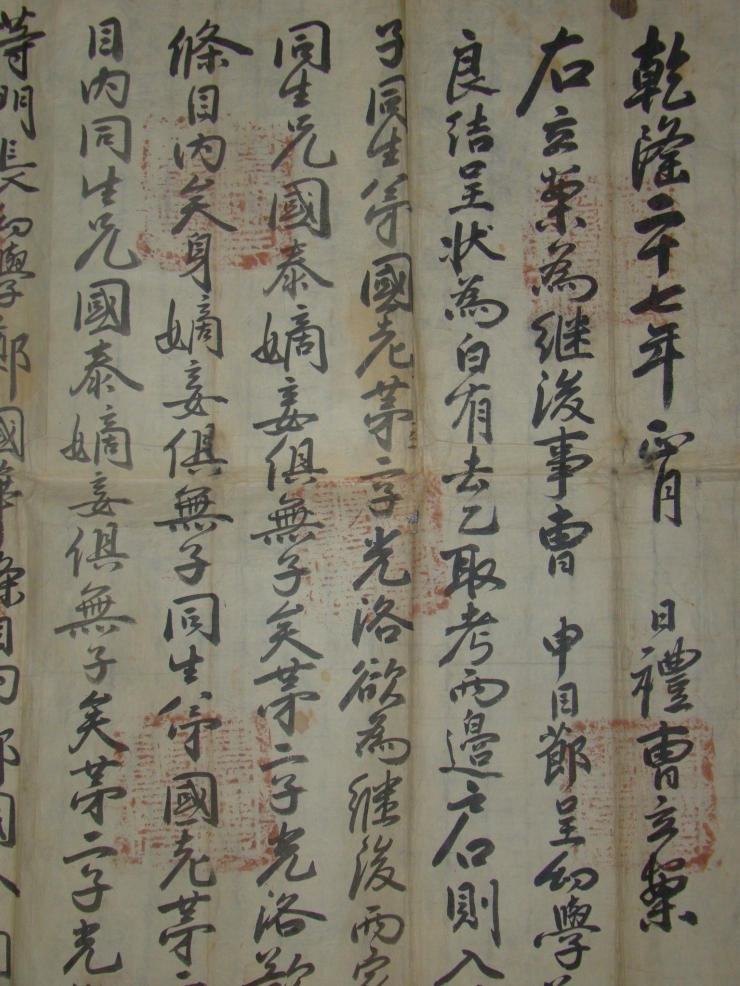 乾隆二十七年正月 日禮曹立案
右立案為継後事曹 申目節呈幼學
良結呈状為白有去乙取考兩邊戶口則
子同生弟國老第二子光洛欲為継後兩
同生兄國泰嫡妾俱無子矣第二子光洛欲
條目内矣身嫡妾俱無子同生弟國老第二
目内同生兄國泰嫡妾俱無子矣第二子光
等明長幼學鄭國 條目内鄭國